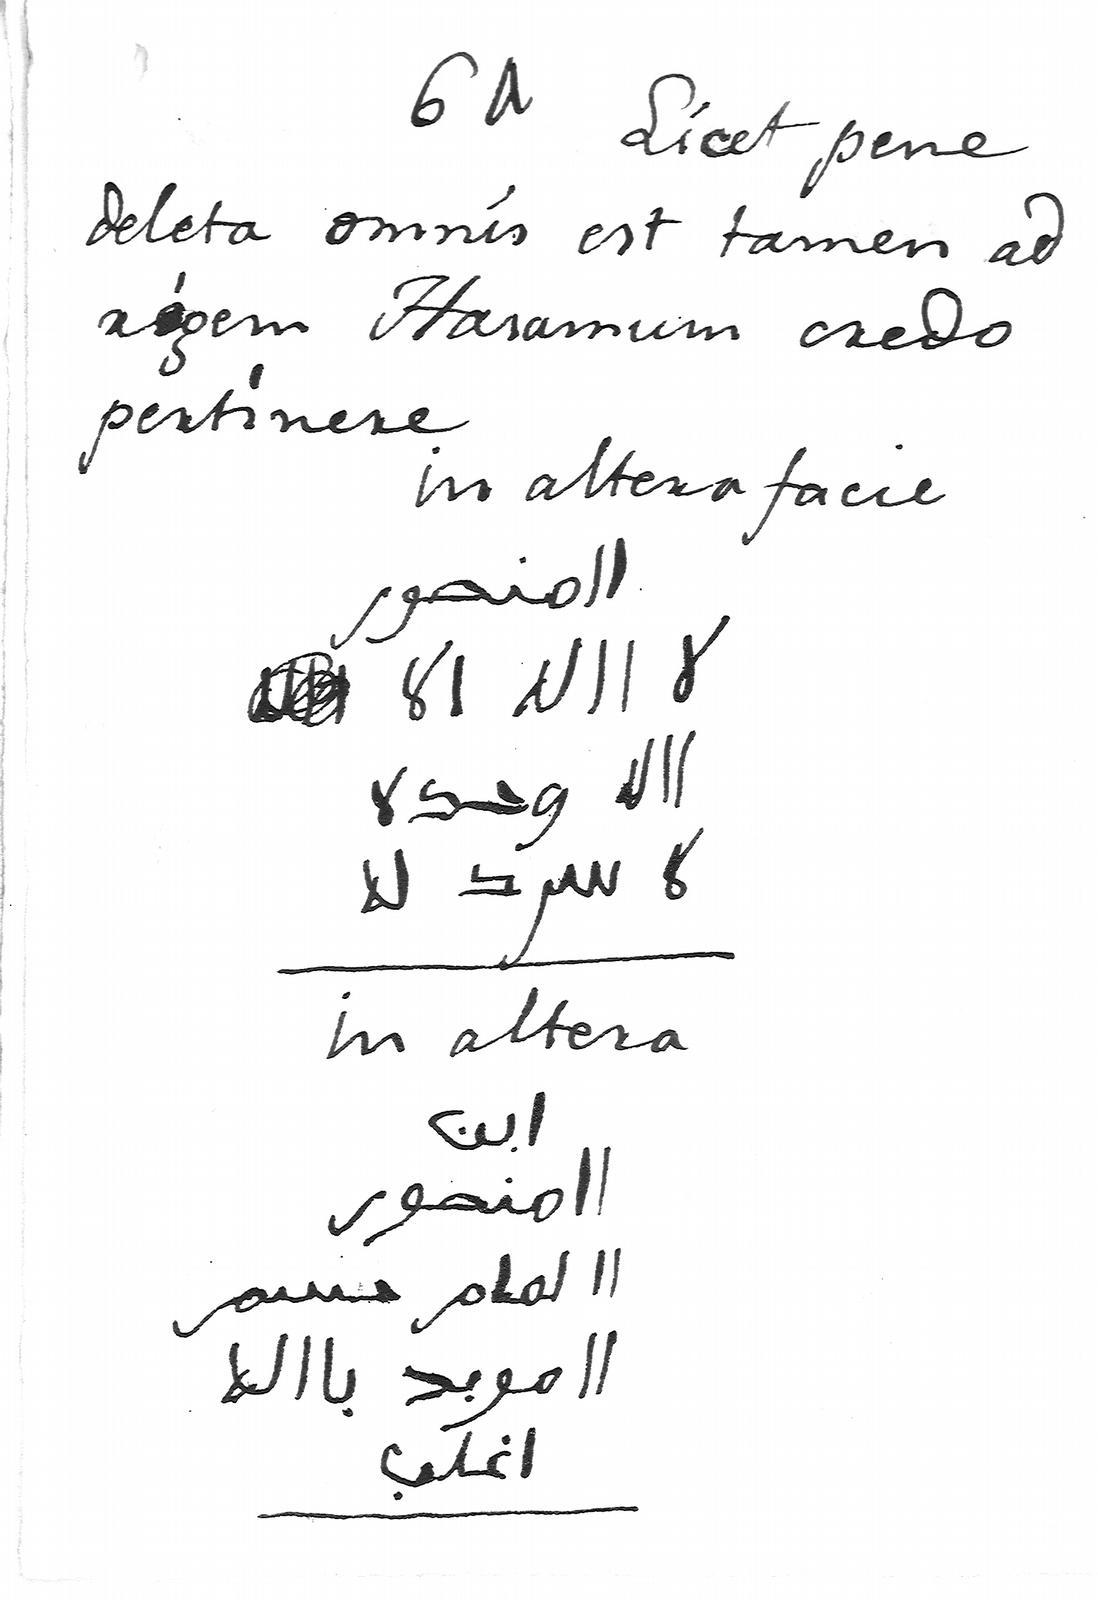 6 A
Licet pene
deleta omnis est tamen ad
regem Haramum credo
pertinere
in altera facie
المنصور
لا اله الا
الله وحده
لا سرىك له
in altera
ابن
المنصور
الامام هشىم
المويد بالله
اغلب